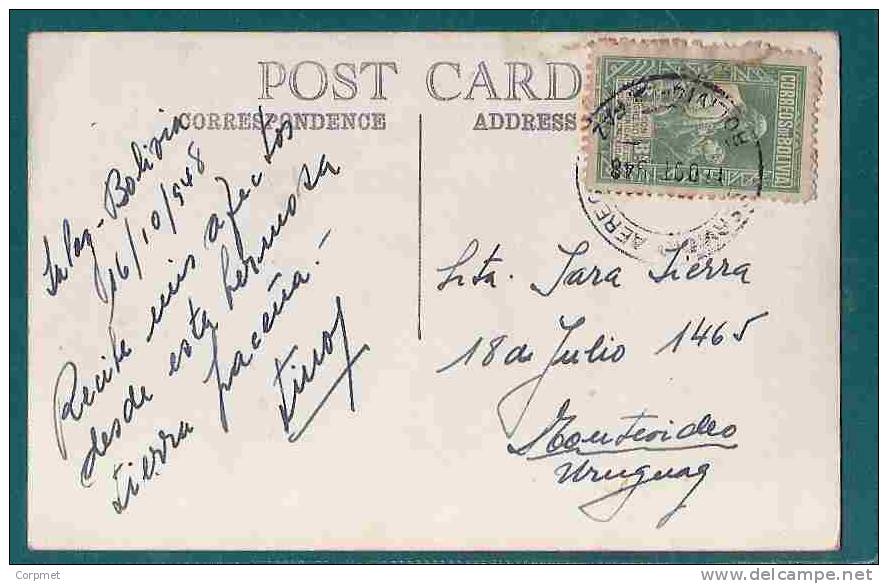 POST CARD
CORRESPONDENCE
ADDRESS
CORREOS DE BOLIVIA
OCT 948
La Paz-Bolivia
16/10/948
Recibe mis afectos
desde esta hermosa
tierra paceña!
Srta. Sara Sierra
18 de Julio 1465
Montevideo
Uruguay
Corpmet